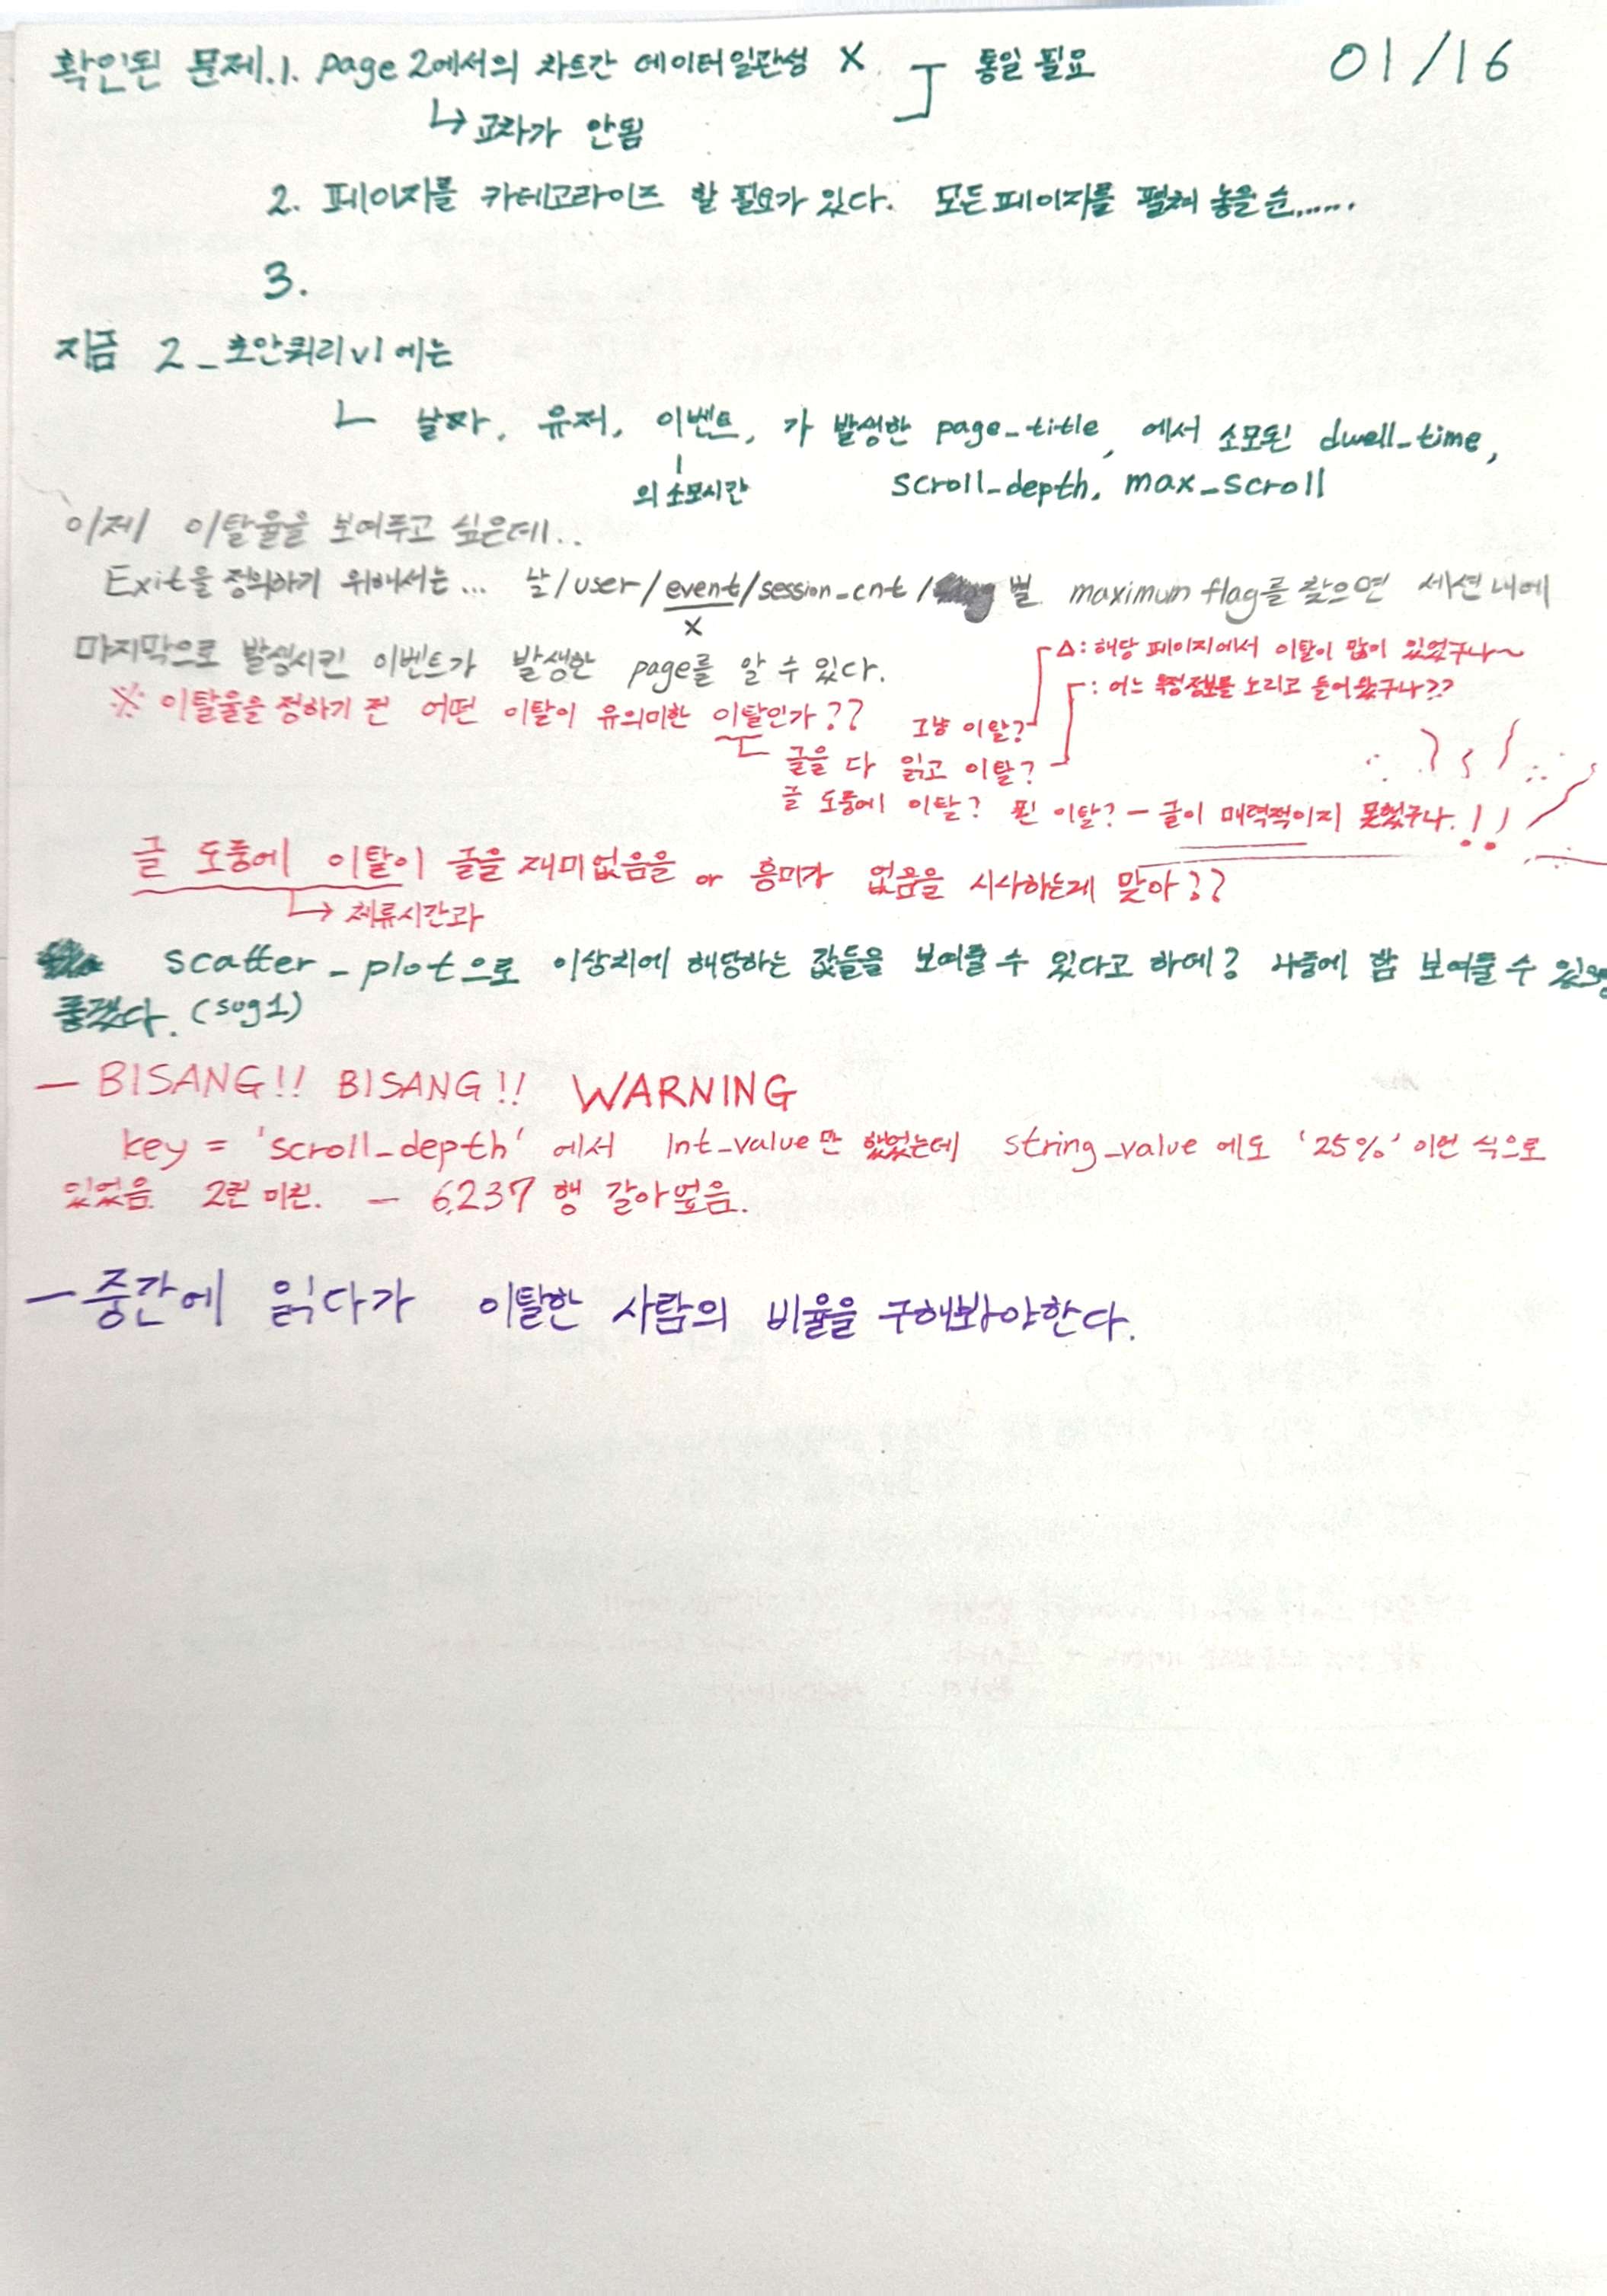 확인된 문제.1. page 2에서의 차트간 데이터일관성 X 통일 필요 01/16
↳ 교차가 안됨
2. 페이지를 카테고라이즈 할 필요가 있다. 모든페이지를 펼쳐 놓을 순......
3.
지금 2_초안쿼리v1에는
ㄴ 날짜, 유저, 이벤트, 가 발생한 page_title, 에서 소모된 dwell_time,
의 소모시간 scroll_depth, max_scroll
이제 이탈율을 보여주고 싶은데..
Exit을 정의하기 위해서는... 날/user/event/session_cnt/ 별 maximum flag를 찾으면 세션 내에
X
마지막으로 발생시킨 이벤트가 발생한 page를 알 수 있다.
△: 해당 페이지에서 이탈이 많이 있었구나~
: 어느 특정정보를 노리고 들어왔구나??
※ 이탈율을 정하기 전 어떤 이탈이 유의미한 이탈인가?? 그냥 이탈?
글을 다 읽고 이탈?
글 도중에 이탈? 찐 이탈? - 글이 매력적이지 못했구나.!!
글 도중에 이탈이 글을 재미없음을 or 흥미가 없음을 시사하는게 맞아??
↳ 체류시간과
scatter_plot으로 이상치에 해당하는 값들을 보여줄 수 있다고 하네? 나중에 함 보여줄 수 있으면
좋겠다. (sog1)
- BISANG!! BISANG!! WARNING
key = 'scroll_depth' 에서 Int_value만 했었는데 string_value 에도 '25%' 이런 식으로
있었음. - 6,237 행 갈아엎음.
- 중간에 읽다가 이탈한 사람의 비율을 구해봐야한다.